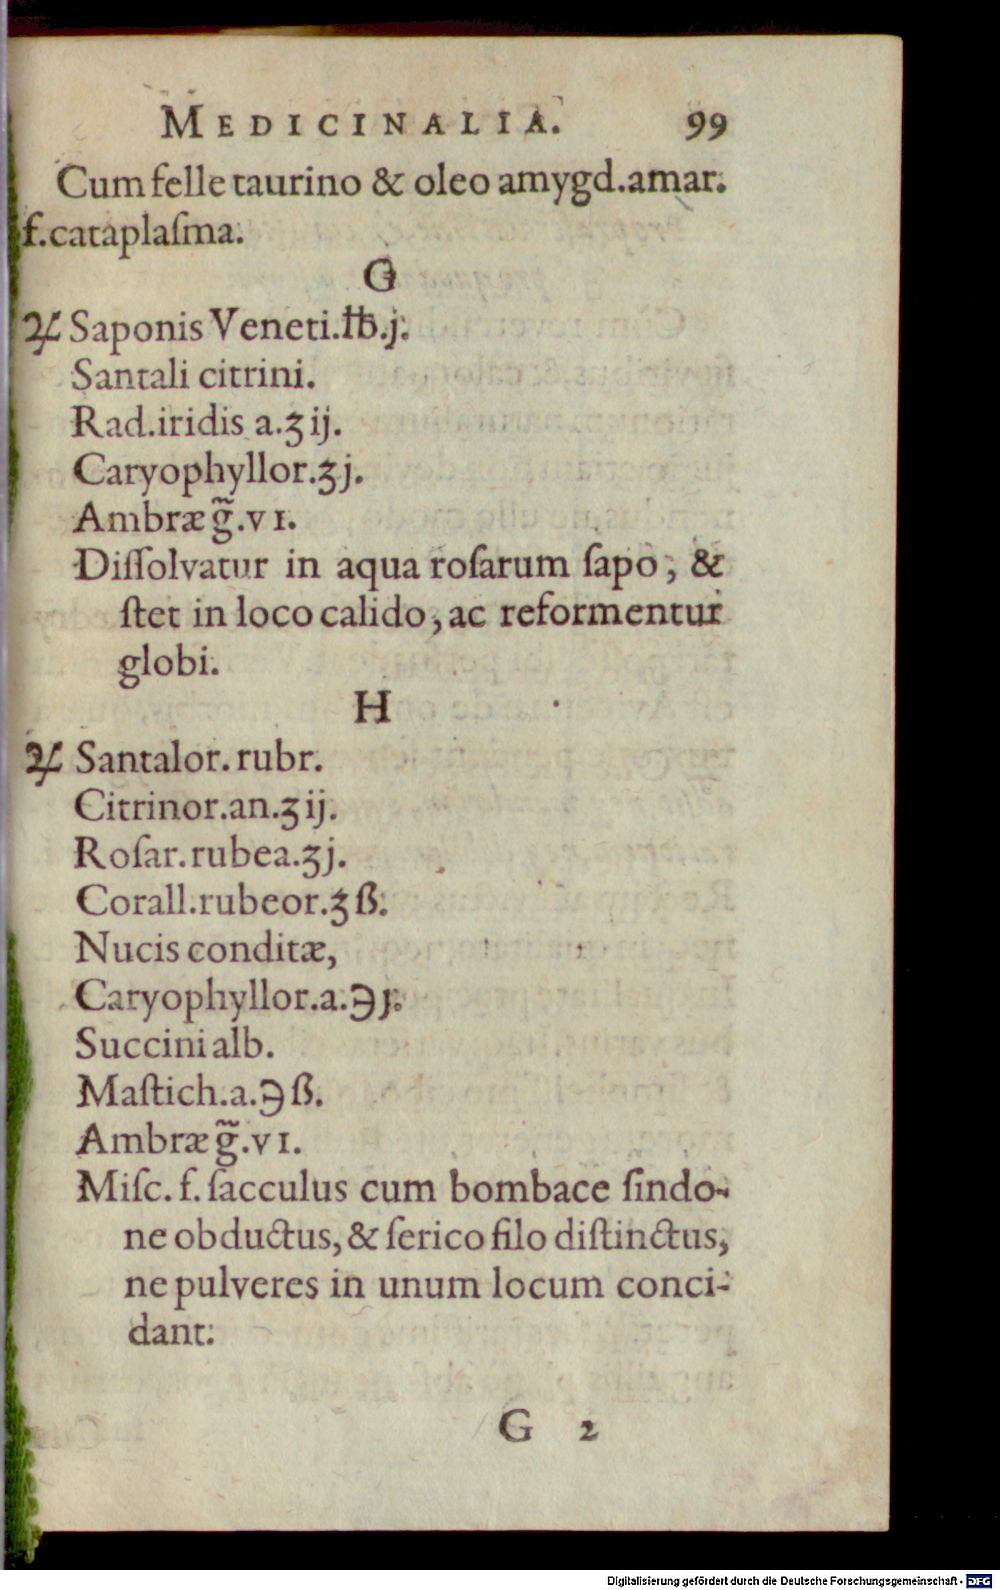 MEDICINALIA. 99
Cum felle taurino & oleo amygd.amar.
f.cataplaſma.
G
♃ Saponis Veneti.℔.j.
Santali citrini.
Rad.iridis a.ʒij.
Caryophyllor.ʒj.
Ambræ g̃.vı.
Diſſolvatur in aqua roſarum ſapo, &
ſtet in loco calido, ac reformentur
globi.
H
♃ Santalor. rubr.
Citrinor.an.ʒij.
Roſar. rubea.ʒj.
Corall.rubeor.ʒß.
Nucis conditæ,
Caryophyllor.a.℈j.
Succini alb.
Maſtich.a.℈ß.
Ambræ g̃.vı.
Miſc. f. ſacculus cum bombace ſindo-
ne obductus, & ſerico filo diſtinctus,
ne pulveres in unum locum conci-
dant.
G 2
Digitalisierung gefördert durch die Deutsche Forschungsgemeinschaft - DFG